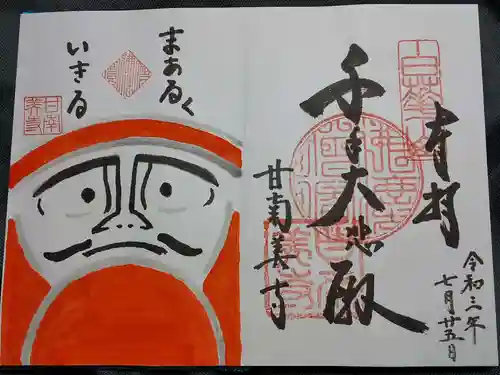 奉拝
千手大悲殿
甘南美寺
令和三年
七月廿五日
まあるく
いきる
甘南
美寺